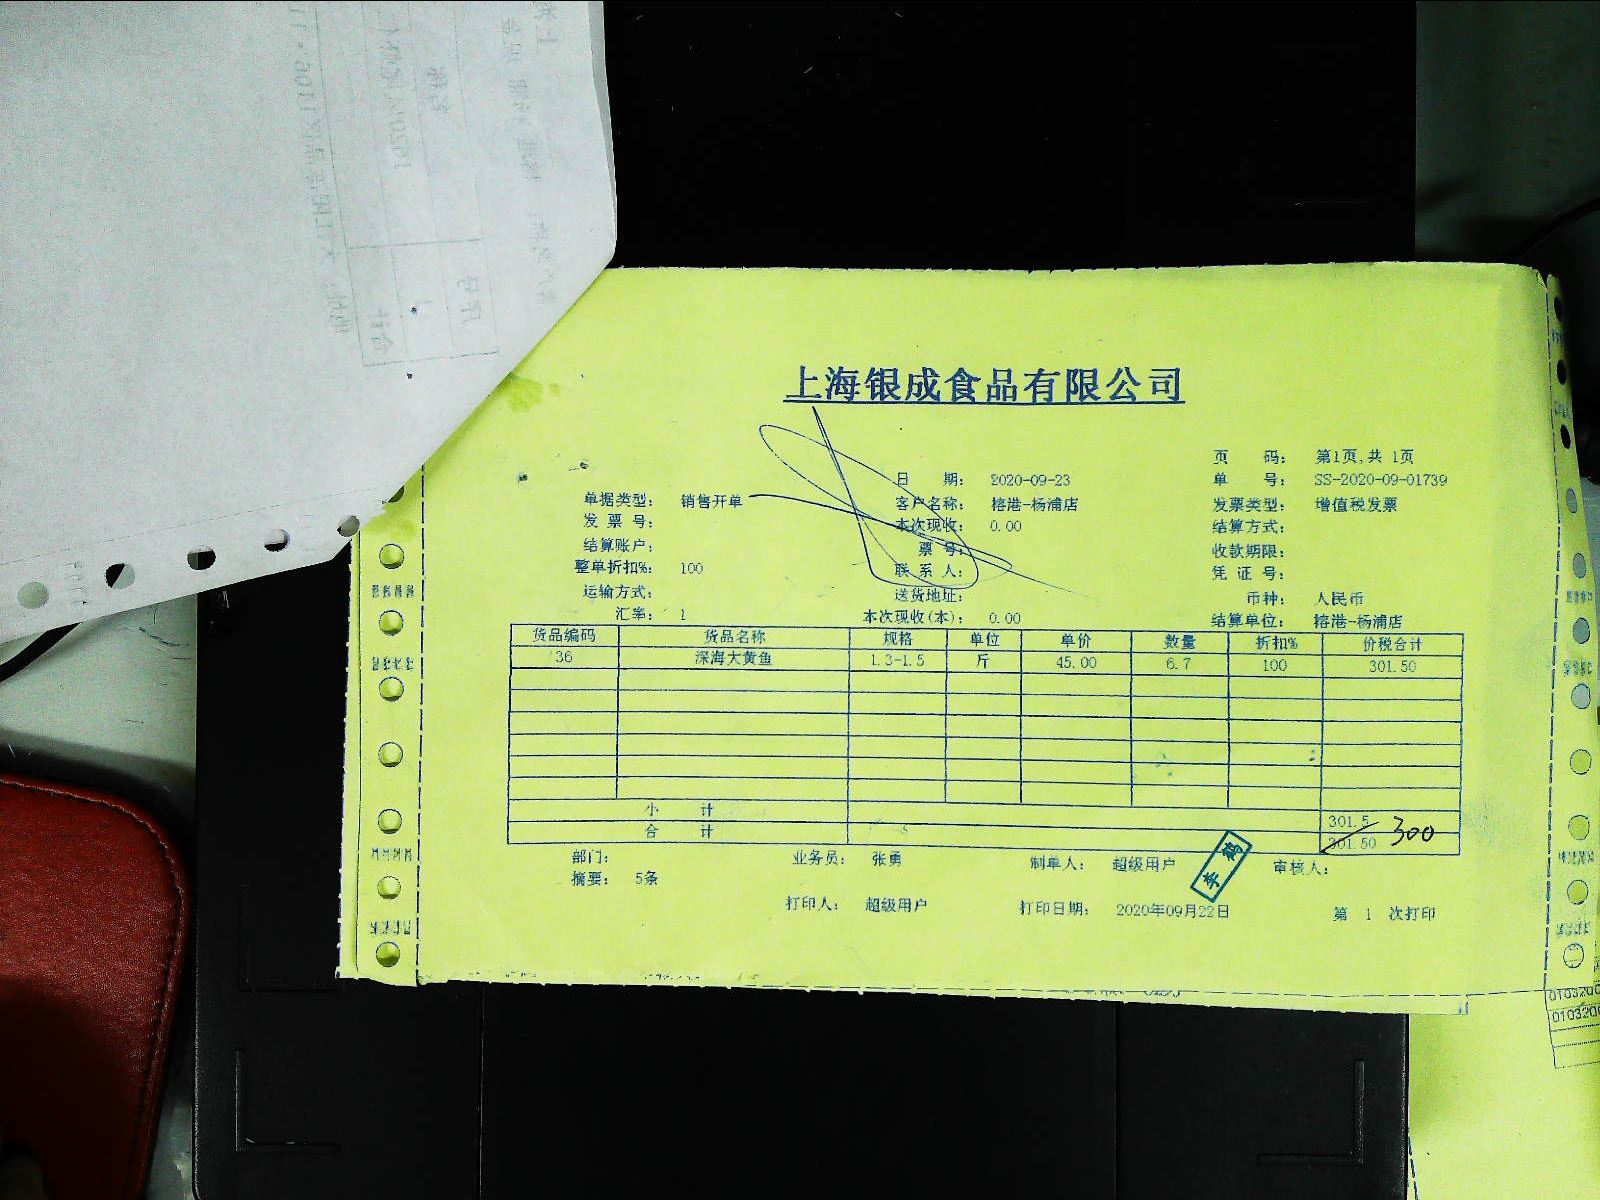 上海银成食品有限公司
页 码: 第1页,共 1页
日 期: 2020-09-23 单 号: SS-2020-09-01739
单据类型: 销售开单 客户名称: 榕港-杨浦店 发票类型: 增值税发票
发 票 号: 本次现收: 0.00 结算方式:
结算账户: 票 号: 收款期限:
整单折扣%: 100 联 系 人: 凭 证 号:
运输方式: 送货地址: 币种: 人民币
汇率: 1 本次现收(本): 0.00 结算单位: 榕港-杨浦店
货品编码 货品名称 规格 单位 单价 数量 折扣% 价税合计
36 深海大黄鱼 1.3-1.5 斤 45.00 6.7 100 301.50
小 计 301.5
合 计 301.50 300
部门: 业务员: 张勇 制单人: 超级用户 李鹤 审核人:
摘要: 5条
打印人: 超级用户 打印日期: 2020年09月22日 第 1 次打印